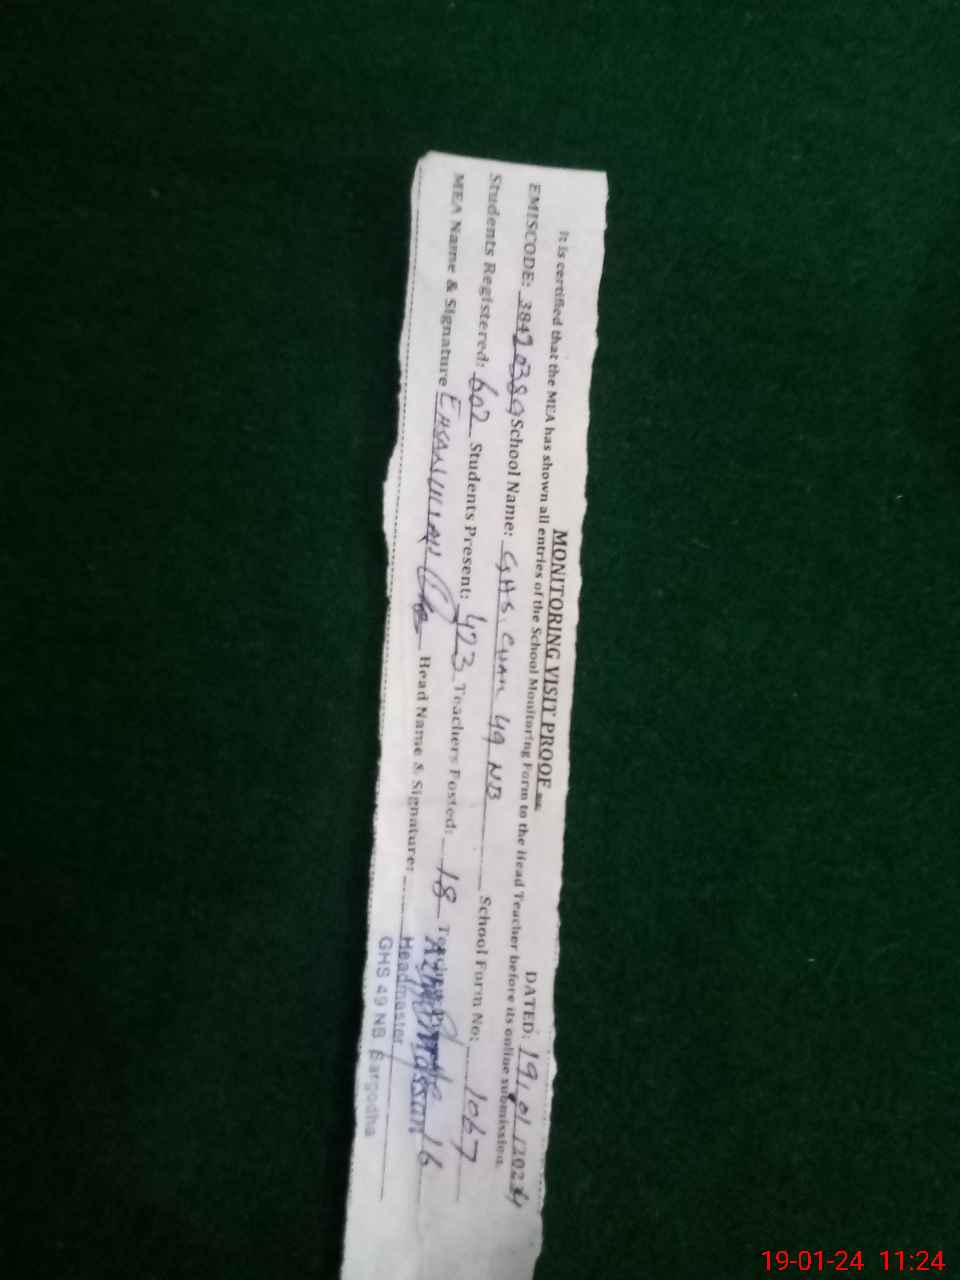 MONITORING VISIT PROOF
DATED: 19/01/2024
It is certified that the MEA has shown all entries of the School Monitoring Form to the Head Teacher before its online submission.
EMISCODE: 38420389 School Name: GHS. CHAK 49 NB School Form No: 1067
Students Registered: 602 Students Present: 423 Teachers Posted: 18 16
MEA Name & Signature EHSANULLAH Head Name & Signature:
Headmaster
GHS 49 NB Sargodha
19-01-24 11:24